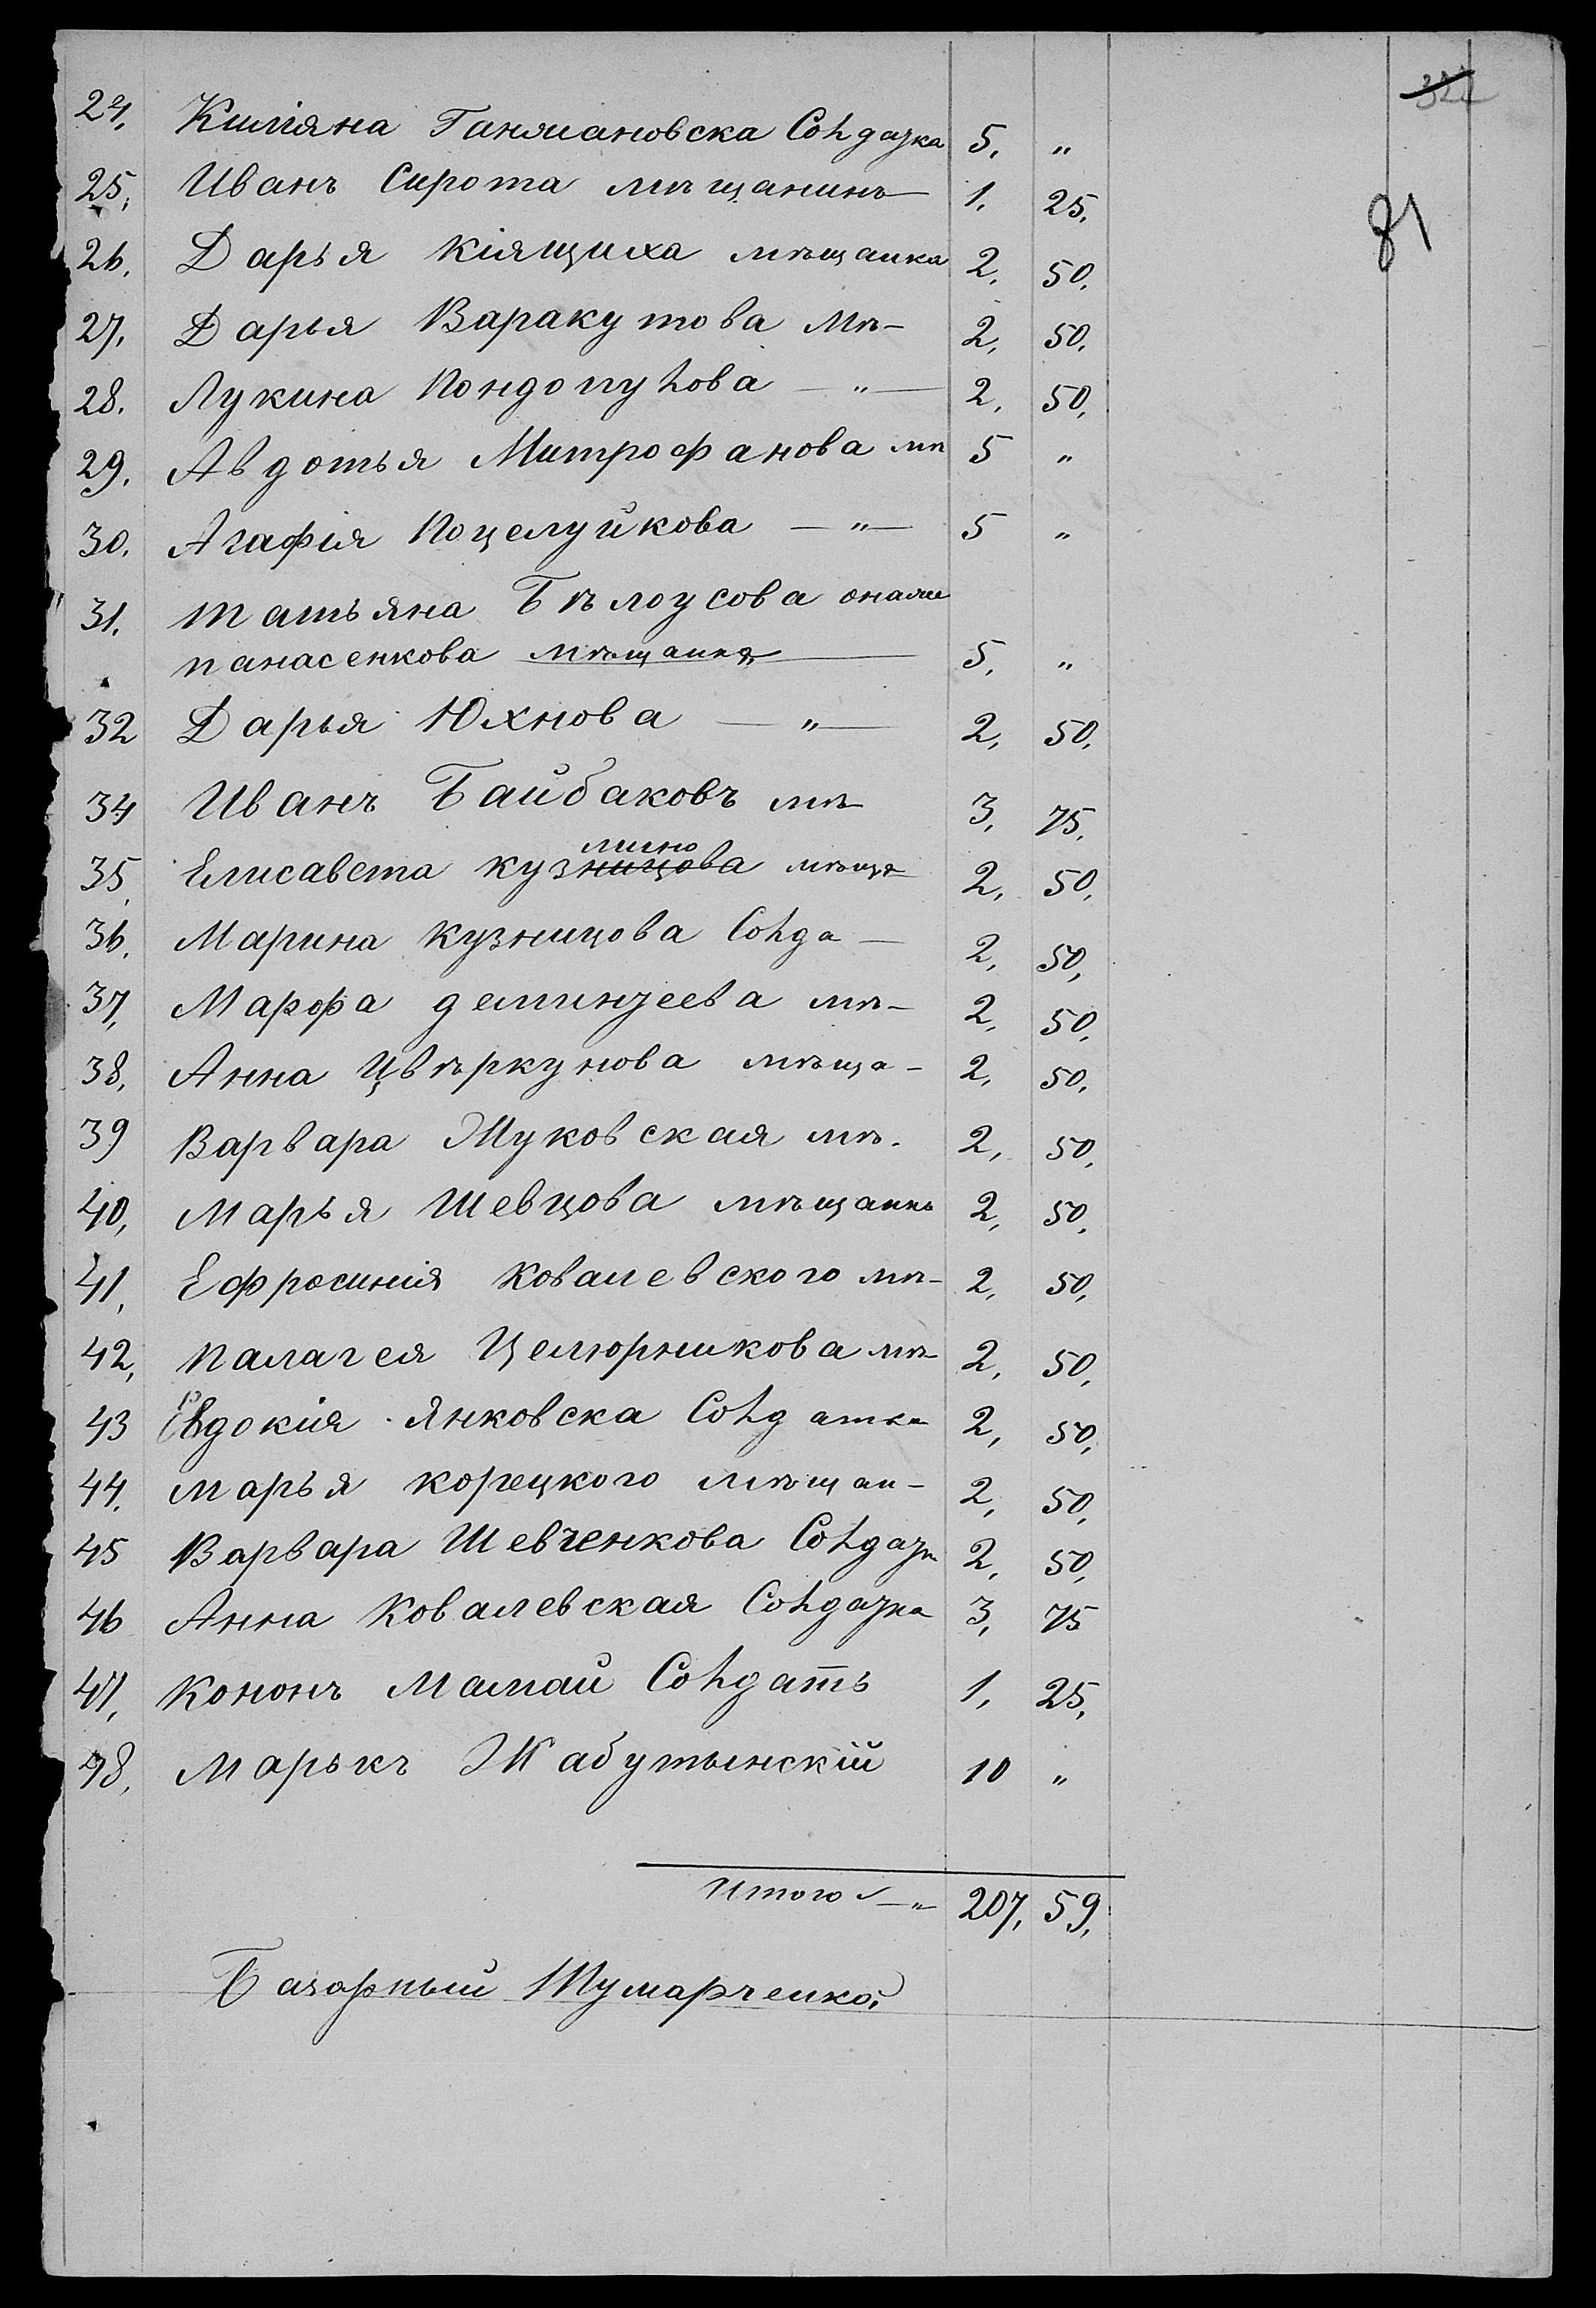 322
81
24, Киліяна Ганямановска Солдатка 5. "
25, Иванъ Сирота мѣщанинъ 1. 25.
26. Дарья Кіящиха мѣщанка 2. 50.
27. Дарья Варакутова мѣ- 2, 50.
28. Лукина Пондопулова —"— 2. 50.
29. Авдотья Митрофанова мѣ 5 "
30. Агафія Поцелуйкова —"— 5 "
31. Татьяна Бѣлоусова онаже
Панасенкова мѣщанка 5. "
32 Дарья Юхнова —"— 2, 50.
34 Иванъ Байбаковъ мѣ- 3, 75.
мино
35, Елисавета Кузницова мѣща 2, 50.
36. Марина Кузницова Солда- 2, 50,
37, Марфа деминзеева мѣ- 2, 50.
38. Анна Цвѣркунова мѣща- 2, 50.
39 Варвара Жуковская мѣ. 2, 50.
40, Марья Шевцова мѣщанка 2, 50.
41, Ефросинія Ковалевского мѣ- 2, 50,
42, Палагея Целюрникова мѣ- 2, 50,
43 Евдокія Янковска Солдатка 2, 50,
44. Марья Корецкого мѣщан- 2, 50,
45 Варвара Шевченкова Солдат 2, 50,
46 Анна Ковалевская Солдатка 3, 75
47, Кононъ Мамай Солдатъ 1, 25,
48, Марькъ Жабутынскій 10 "
Итого —" 207, 59,
Базарный Шумарченко.